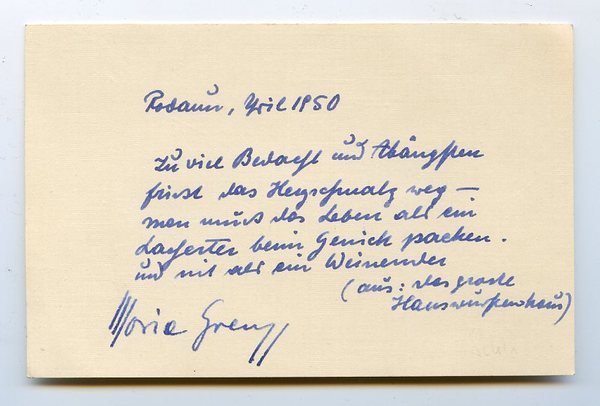 Rodaun, April 1950
Zu viel Bedacht und Abängsten
frisst das Herzschmalz weg —
man muß das Leben als ein
Lachender beim Genick packen.
und nit als ein Weinender
(aus: das große
Hanswurstenhaus)
Maria Grengg